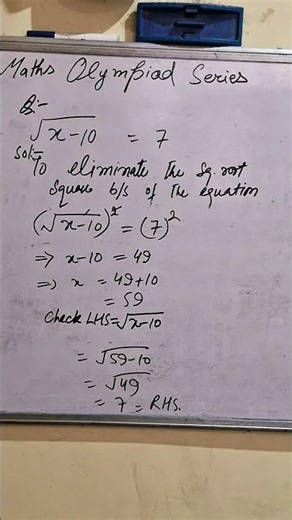 Maths Olympiad Series
Q:-
√x-10 = 7
Sol:- To eliminate the Sq. root
Square b/s of the equation
(√x-10)² = (7)²
⇒ x-10 = 49
⇒ x = 49+10
= 59
Check LHS = √x-10
= √59-10
= √49
= 7 = RHS.